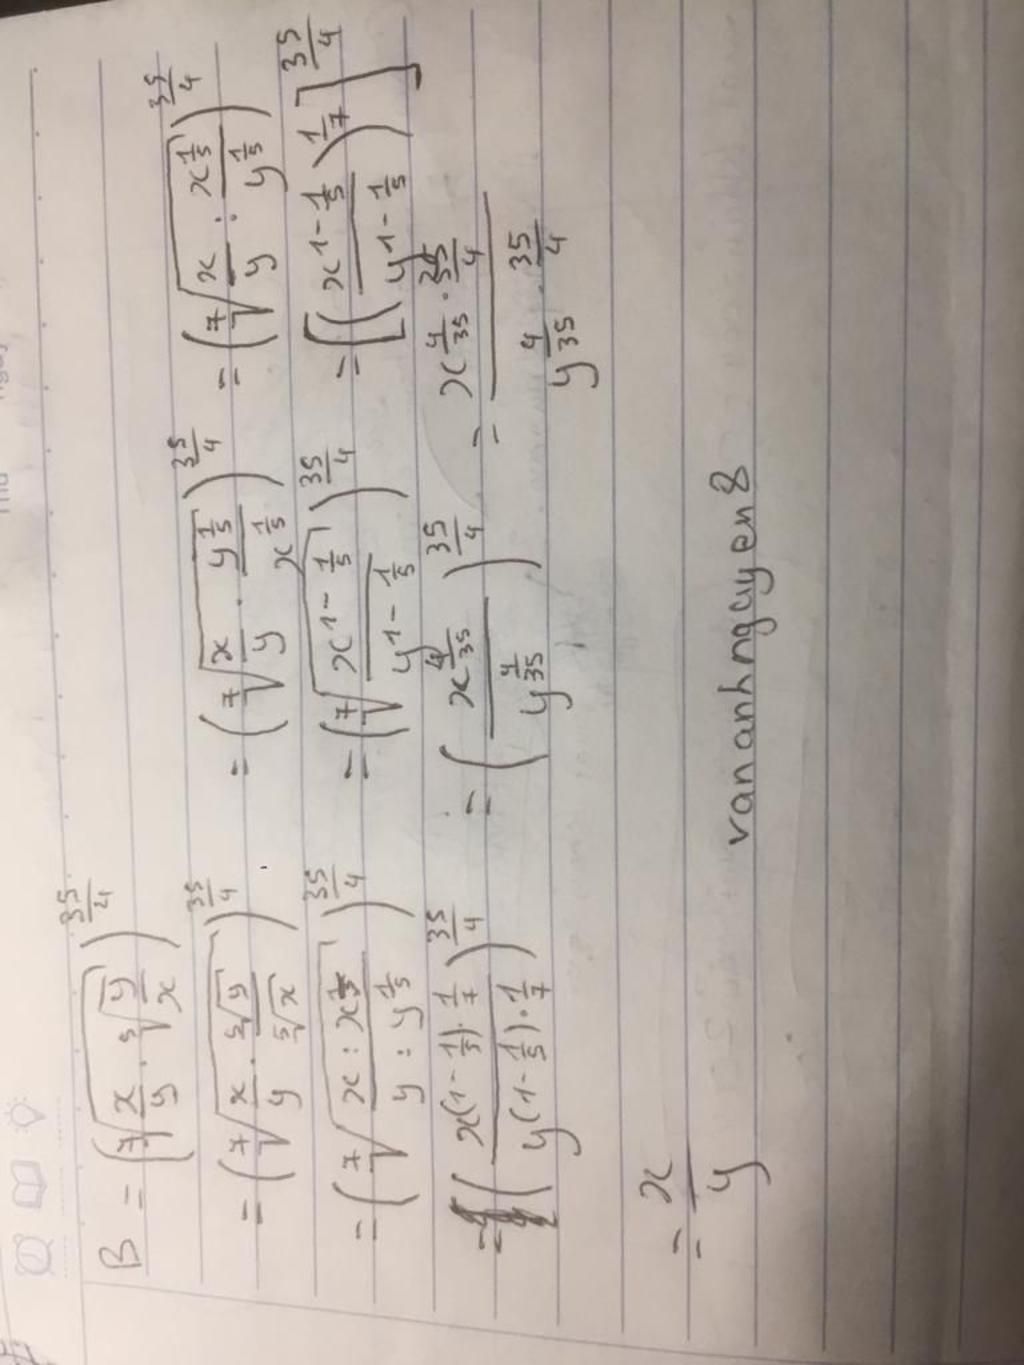 B = (\sqrt[7]{\frac{x}{y} \cdot \sqrt[5]{\frac{y}{x}}})^{\frac{35}{4}}
= (\sqrt[7]{\frac{x}{y} \cdot \frac{\sqrt[5]{y}}{\sqrt[5]{x}}})^{\frac{35}{4}} = (\sqrt[7]{\frac{x}{y} \cdot \frac{y^{\frac{1}{5}}}{x^{\frac{1}{5}}}})^{\frac{35}{4}} = (\sqrt[7]{\frac{x}{y} : \frac{x^{\frac{1}{5}}}{y^{\frac{1}{5}}}})^{\frac{35}{4}}
= (\sqrt[7]{\frac{x : x^{\frac{1}{5}}}{y : y^{\frac{1}{5}}}})^{\frac{35}{4}} = (\sqrt[7]{\frac{x^{1-\frac{1}{5}}}{y^{1-\frac{1}{5}}}})^{\frac{35}{4}} = [(\frac{x^{1-\frac{1}{5}}}{y^{1-\frac{1}{5}}})^{\frac{1}{7}}]^{\frac{35}{4}}
= (\frac{x^{(1-\frac{1}{5}) \cdot \frac{1}{7}}}{y^{(1-\frac{1}{5}) \cdot \frac{1}{7}}})^{\frac{35}{4}} = (\frac{x^{\frac{4}{35}}}{y^{\frac{4}{35}}})^{\frac{35}{4}} = \frac{x^{\frac{4}{35} \cdot \frac{35}{4}}}{y^{\frac{4}{35} \cdot \frac{35}{4}}}
= \frac{x}{y}
vananhnguyen8